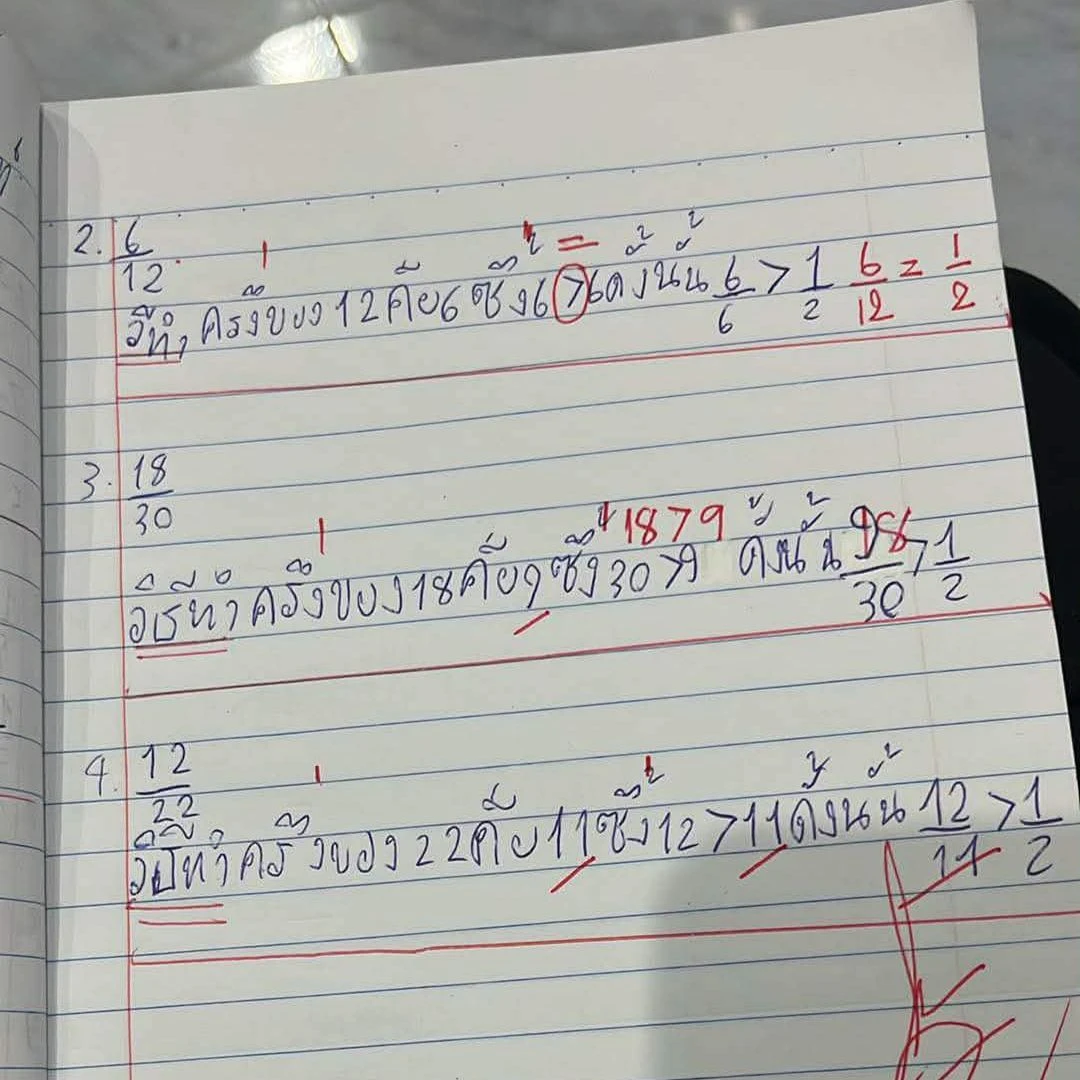 2. 6/12
วิธีทำ ครึ่งของ 12 คือ 6 ซึ่ง 6 > 6 ดังนั้น 6/6 > 1/2 6/12 = 1/2
=
3. 18/30
วิธีทำ ครึ่งของ 18 คือ 9 ซึ่ง 30 > 9 ดังนั้น 18/30 > 1/2
18 > 9
4. 12/22
วิธีทำ ครึ่งของ 22 คือ 11 ซึ่ง 12 > 11 ดังนั้น 12/11 > 1/2